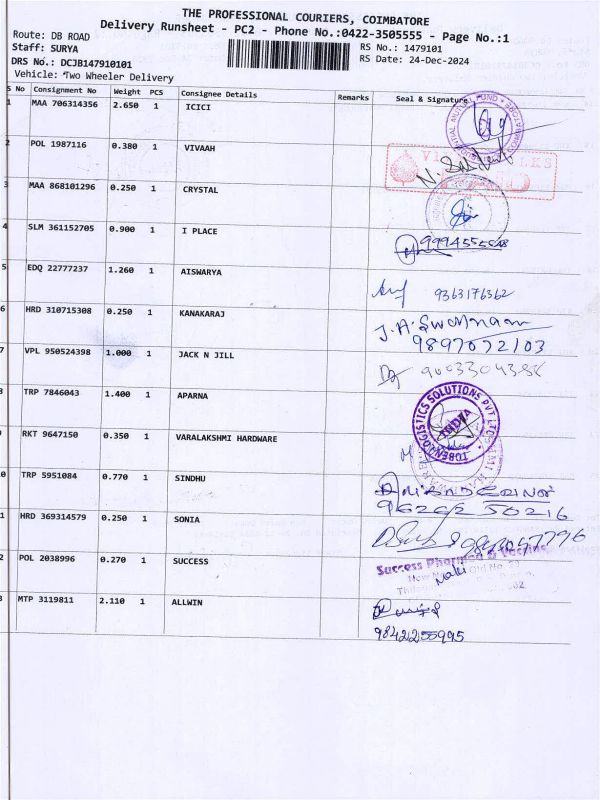 THE PROFESSIONAL COURIERS, COIMBATORE
Delivery Runsheet - PC2 - Phone No.:0422-3505555 - Page No.:1
Route: DB ROAD
Staff: SURYA
DRS No.: DCJB147910101
Vehicle: Two Wheeler Delivery
RS No.: 1479101
RS Date: 24-Dec-2024
S No Consignment No Weight PCS Consignee Details Remarks Seal & Signature
1 MAA 706314356 2.650 1 ICICI
2 POL 1987116 0.380 1 VIVAAH
3 MAA 868101296 0.250 1 CRYSTAL
4 SLM 361152705 0.900 1 I PLACE
5 EDQ 22777237 1.260 1 AISWARYA 9363176362
6 HRD 310715308 0.250 1 KANAKARAJ
9897072103
7 VPL 950524398 1.000 1 JACK N JILL
8 TRP 7846043 1.400 1 APARNA
TOBEN LOGISTICS SOLUTIONS PVT LTD
INDIA
9 RKT 9647150 0.350 1 VARALAKSHMI HARDWARE
0 TRP 5951084 0.770 1 SINDHU
96262 50216
1 HRD 369314579 0.250 1 SONIA
2 POL 2038996 0.270 1 SUCCESS
Success Pharmed &
3 MTP 3119811 2.110 1 ALLWIN
9842255995